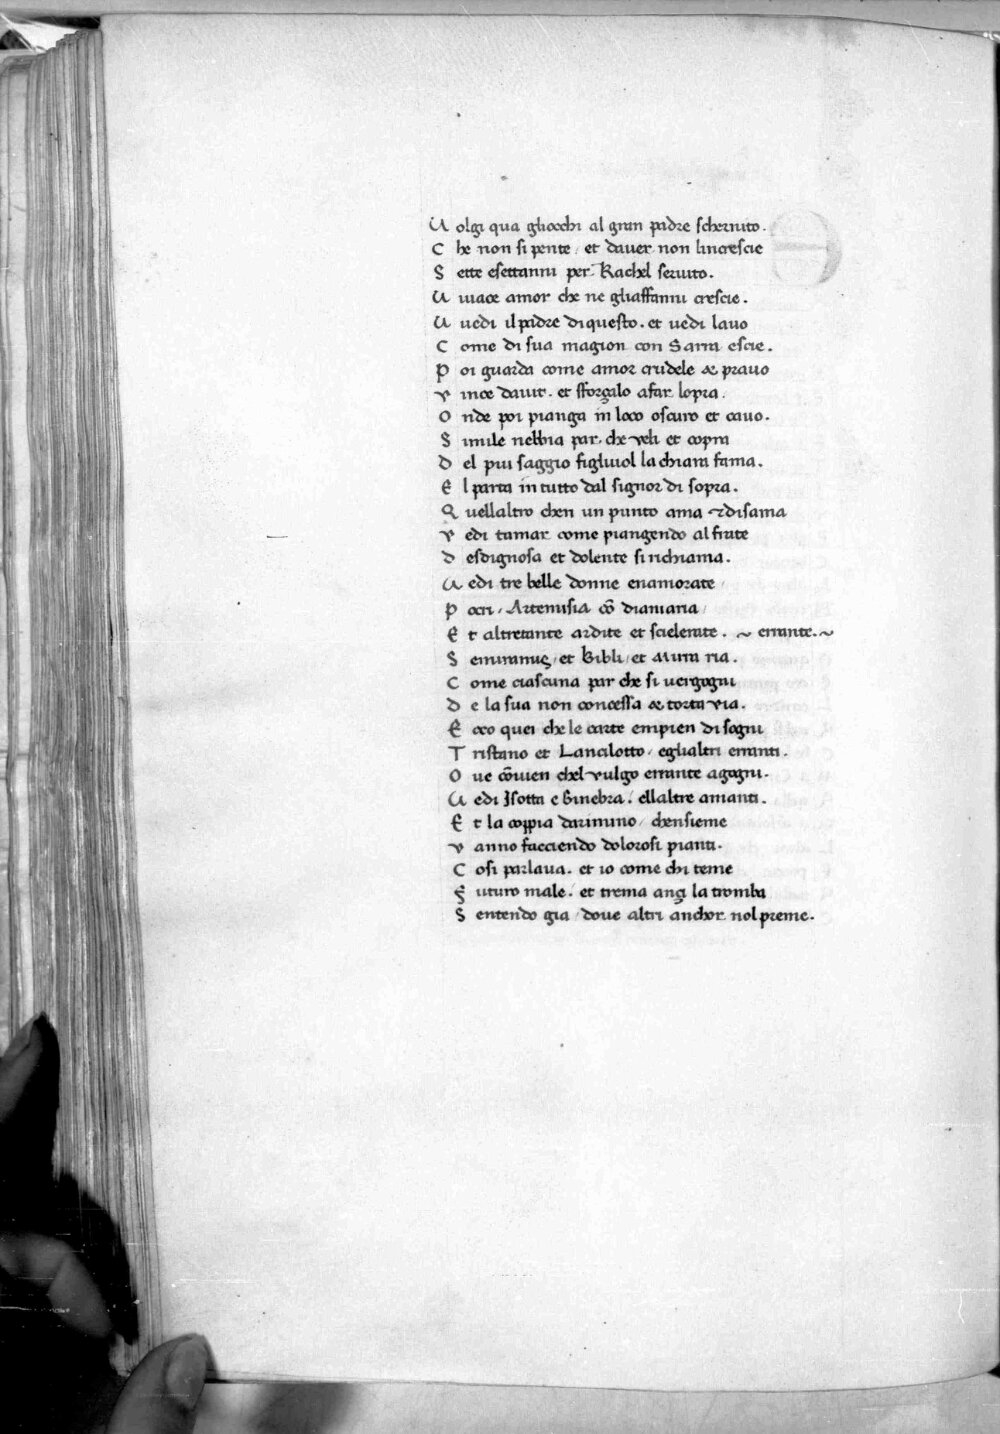 U olgi qua gliocchi al gran padre schernito.
C he non si pente / et dauer non lincrescie
S ette esettanni per Rachel seruito.
U iuace amor che ne gliaffanni crescie.
U uedi il padre di questo . et uedi lauo
C ome di sua magion con Sarra escie.
P oi guarda come amor crudele & prauo
v ince dauit . et sforçalo afar lopra.
O nde poi pianga in loco oscuro et cauo.
S imile nebbia par . che veli et copra
D el piu saggio figliuol la chiara fama.
E l parta in tutto dal signor di sopra.
Q uellaltro chen un punto ama & disama
v edi tamar come piangendo al frate
D esdignosa et dolente si richiama.
U edi tre belle donne enamorate /
P ocri / Artemisia cō dianiaria /
E t altretante ardite et scielerate . ~ errante. ~
S emiramis / et Bibli / et mirra ria .
C ome ciascuna par che si uergogni
D e la sua non concessa & torta via.
E cco quei che le carte empien di sogni
T ristano et Lancilotto / eglialtri erranti .
O ue cōuien chel vulgo errante agogni.
U edi Isotta e Ginebra / ellaltre amanti .
E t la coppia darimino / chensieme
v anno facciendo dolorosi pianti.
C osi parlaua . et io come chi teme
F uturo male / et trema ançi la tromba
S entendo gia / doue altri anchor nol preme.